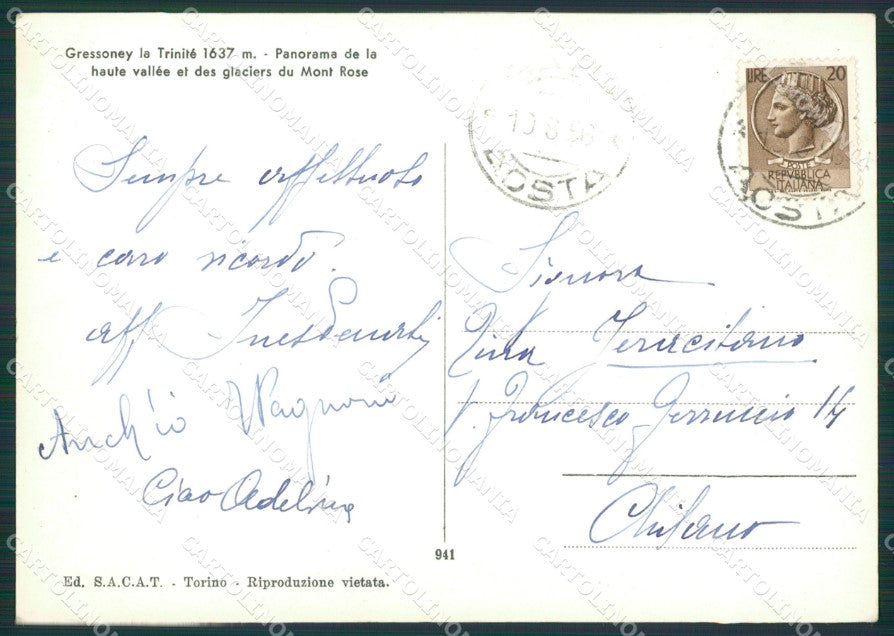 Gressoney la Trinité 1637 m. - Panorama de la
haute vallée et des glaciers du Mont Rose
Sempre affettuoso
e caro ricordo.
aff.
Anch'io Wagnoni
Ciao Adelina
Ed. S.A.C.A.T. - Torino - Riproduzione vietata.
941
10 8 56
AOSTA
LIRE 20
POSTE
REPVBBLICA
ITALIANA
AOSTA
Signora
Terracitano
V. Francesco Ferruccio 14
Milano
CARTOLINOMANIA